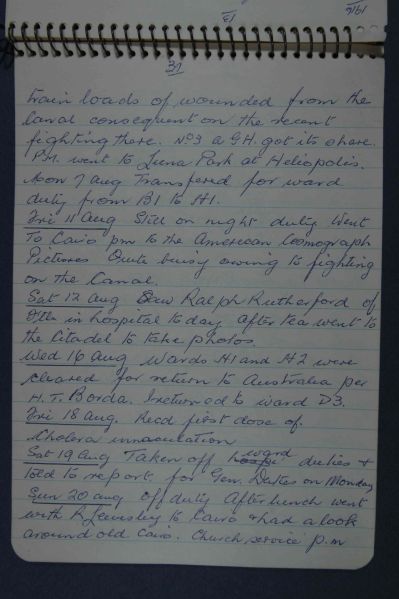 31
train loads of wounded from the
Canal consequent on the recent
fighting there. No 3 A.G.H. got its share.
P.M. went to Luna Park at Heliopolis.
Mon 7 Aug Transfered for ward
duty from B1 to H1.
Fri 11 Aug Still on night duty Went
To Cairo pm to the American Cosmograph
Pictures Quite busy owing to fighting
on the Canal.
Sat 12 Aug Saw Ralph Rutherford of
in hospital today after tea went to
the Citadel to take photos.
Wed 16 Aug Wards H1 and H2 were
cleared for return to Australia per
H.T. Borda. I returned to ward D3.
Fri 18 Aug. Recd first dose of
Cholera innoculation
Sat 19 Aug Taken off ward duties &
told to report for Gen. Duties on Monday
Sun 20 Aug off duty After lunch went
with R to Cairo & had a look
around old Cairo. Church service p.m